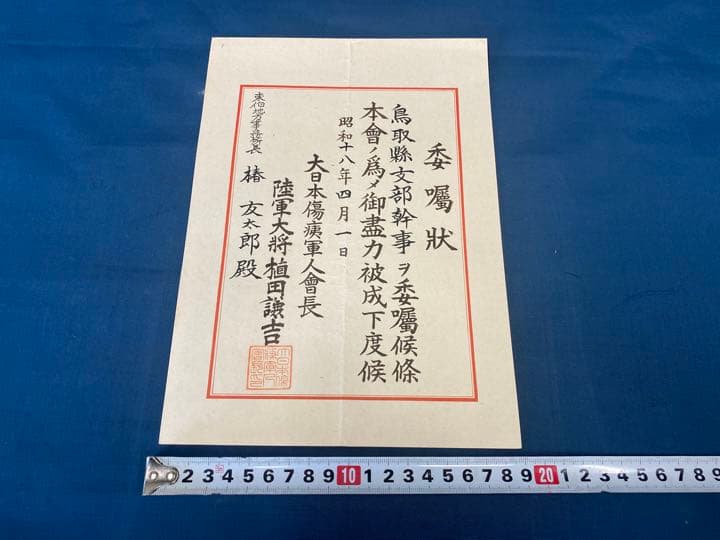 委嘱狀
鳥取縣支部幹事ヲ委嘱候條
本會ノ爲メ御盡力被成下度候
昭和十八年四月一日
大日本傷痍軍人會長
陸軍大將植田謙吉
東伯地方事務所長
椿友太郎殿
2 3 4 5 6 7 8 9 10 1 2 3 4 5 6 7 8 9 20 1 2 3 4 5 6 7 8 9